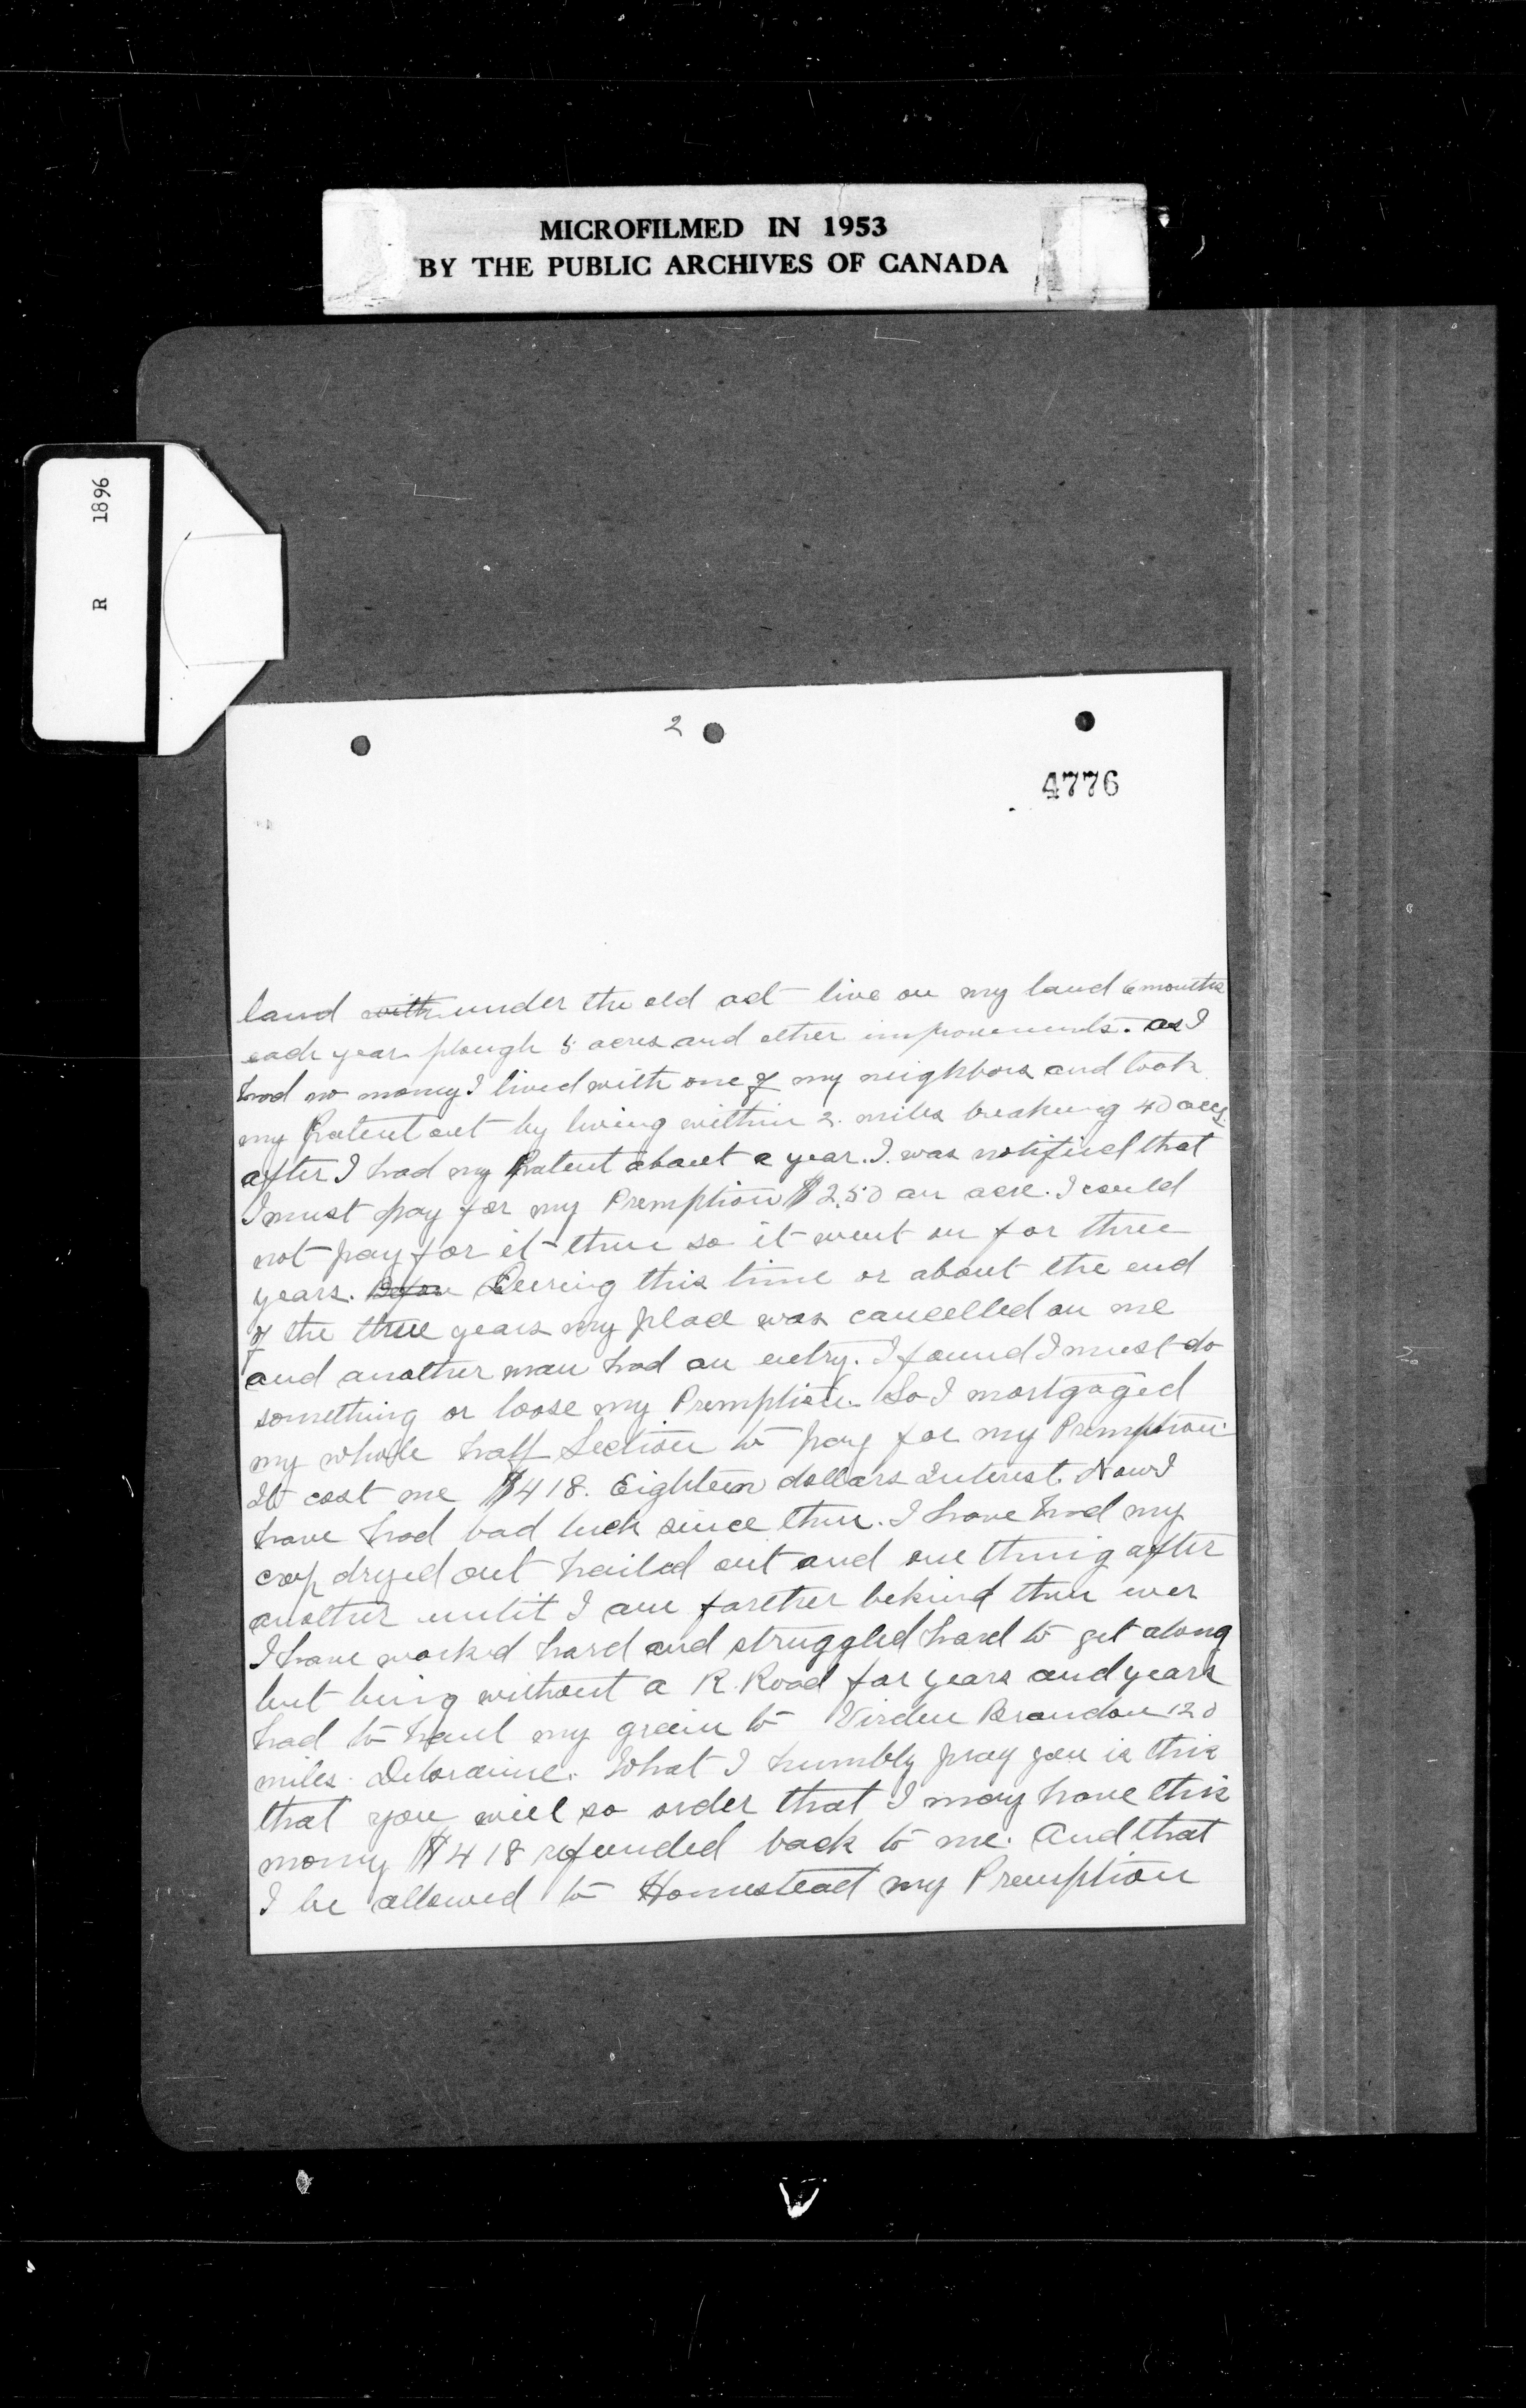 MICROFILMED IN 1953
BY THE PUBLIC ARCHIVES OF CANADA
R 1896
2
4776
land with under the old act live on my land 6 months
each year plough 5 acres and other improvements. as I
had no money I lived with one of my neighbors and took
my Patent out by living within 2. miles breaking 40 acres
after I had my Patent about a year. I. was notified that
I must pay for my Premption $2.50 an acre. I could
not pay for it then so it went on for three
years. Befor During this time or about the end
of the three years my place was cancelled on me
and another man had an entry. I found I must do
something or loose my Premption. So I mortgaged
my whole half Section to pay for my Premption
It cost me $418. Eighteen dollars Interest. Now I
have had bad luck since then. I have had my
crop dryed out hailed out and one thing after
another until I am farther behind then ever
I have worked hard and struggled hard to get along
but being without a R. Road for years and years
had to haul my grain to Virden Brandon 120
miles. Deloraine. What I humbly pray you is this
that you will so order that I may have this
money $418 refunded back to me. And that
I be allowed to Homestead my Premption